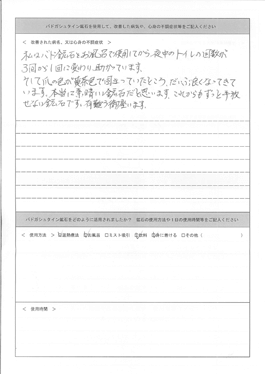 バドガシュタイン鉱石を使用して、改善された病気や、心身の不調症状等をご記入ください
＜ 改善された病気、又は心身の不調症状 ＞
私はバド鉱石をお風呂で使用してから、夜中のトイレの回数が
3回から1回に変わり、助かっています。
そして爪の色が黄茶色で困っていたところ、だいぶ良くなってきて
います。本当に素晴しい鉱石だと思います。これからもずっと手放
せない鉱石です。有難う御座います。
バドガシュタイン鉱石をどのように活用されましたか？ 鉱石の使用方法や1日の使用時間等をご記入ください
＜ 使用方法 ＞ 温熱療法 お風呂 ミスト吸引 飲料 床に敷ける その他（ ）
＜ 使用時間 ＞